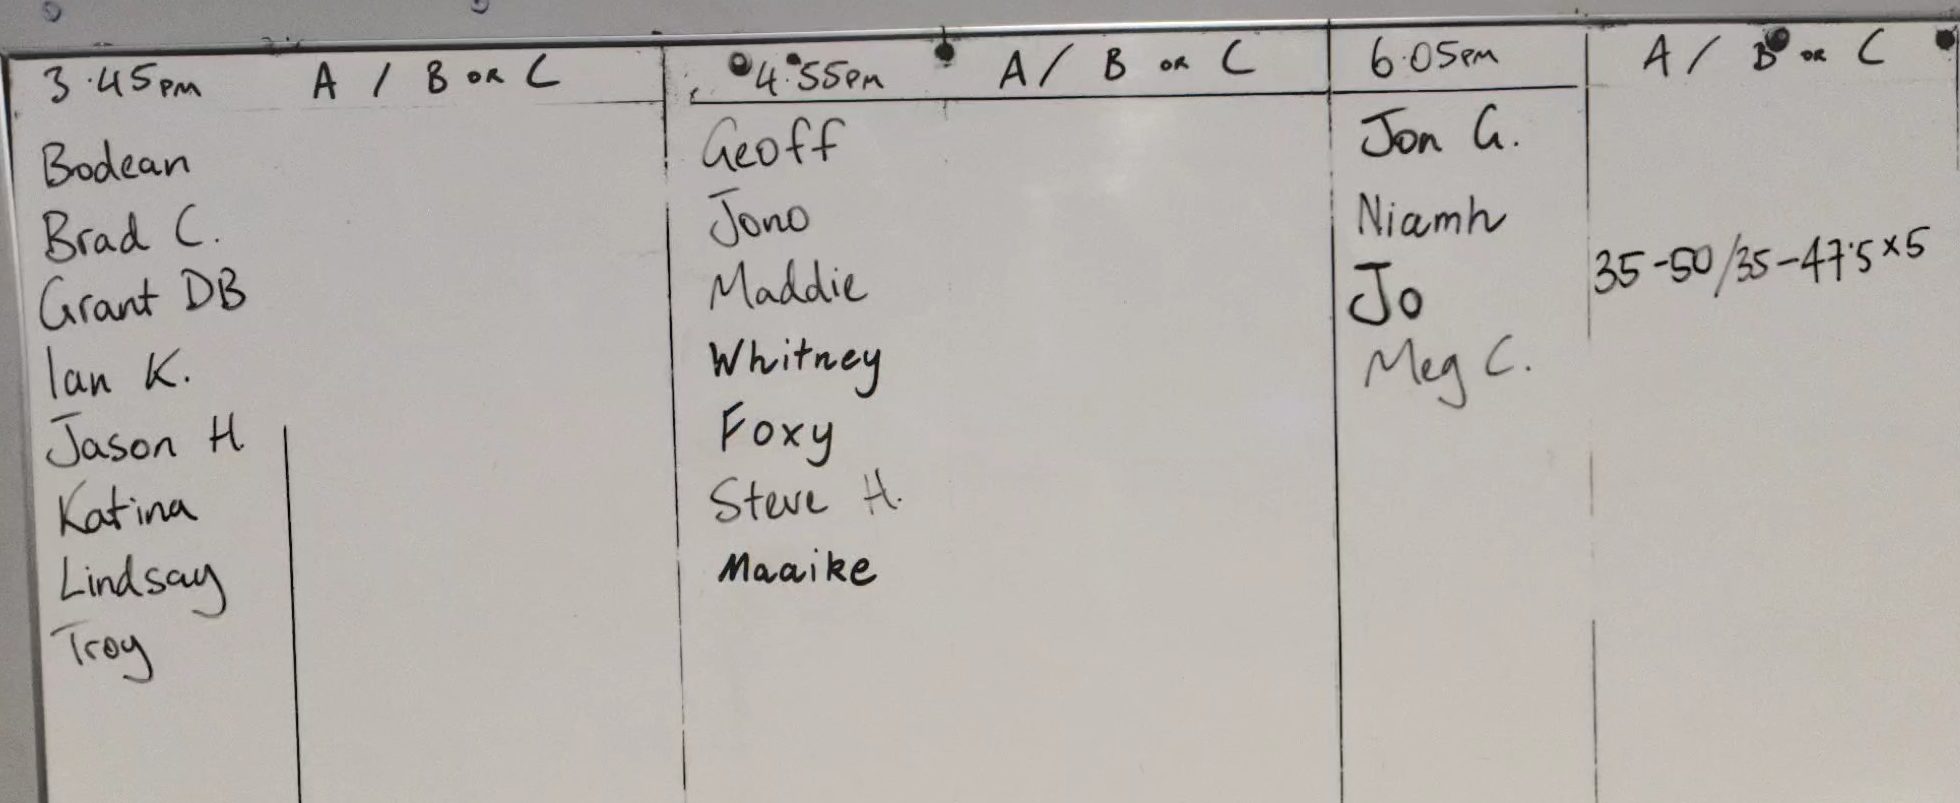 3.45pm A / B or C
Bodean
Brad C.
Grant DB
Ian K.
Jason H
Katina
Lindsay
Troy
4.55pm A / B or C
Geoff
Jono
Maddie
Whitney
Foxy
Steve H.
Maaike
6.05pm A / B or C
Jon G.
Niamh
Jo 35-50/35-47.5x5
Meg C.